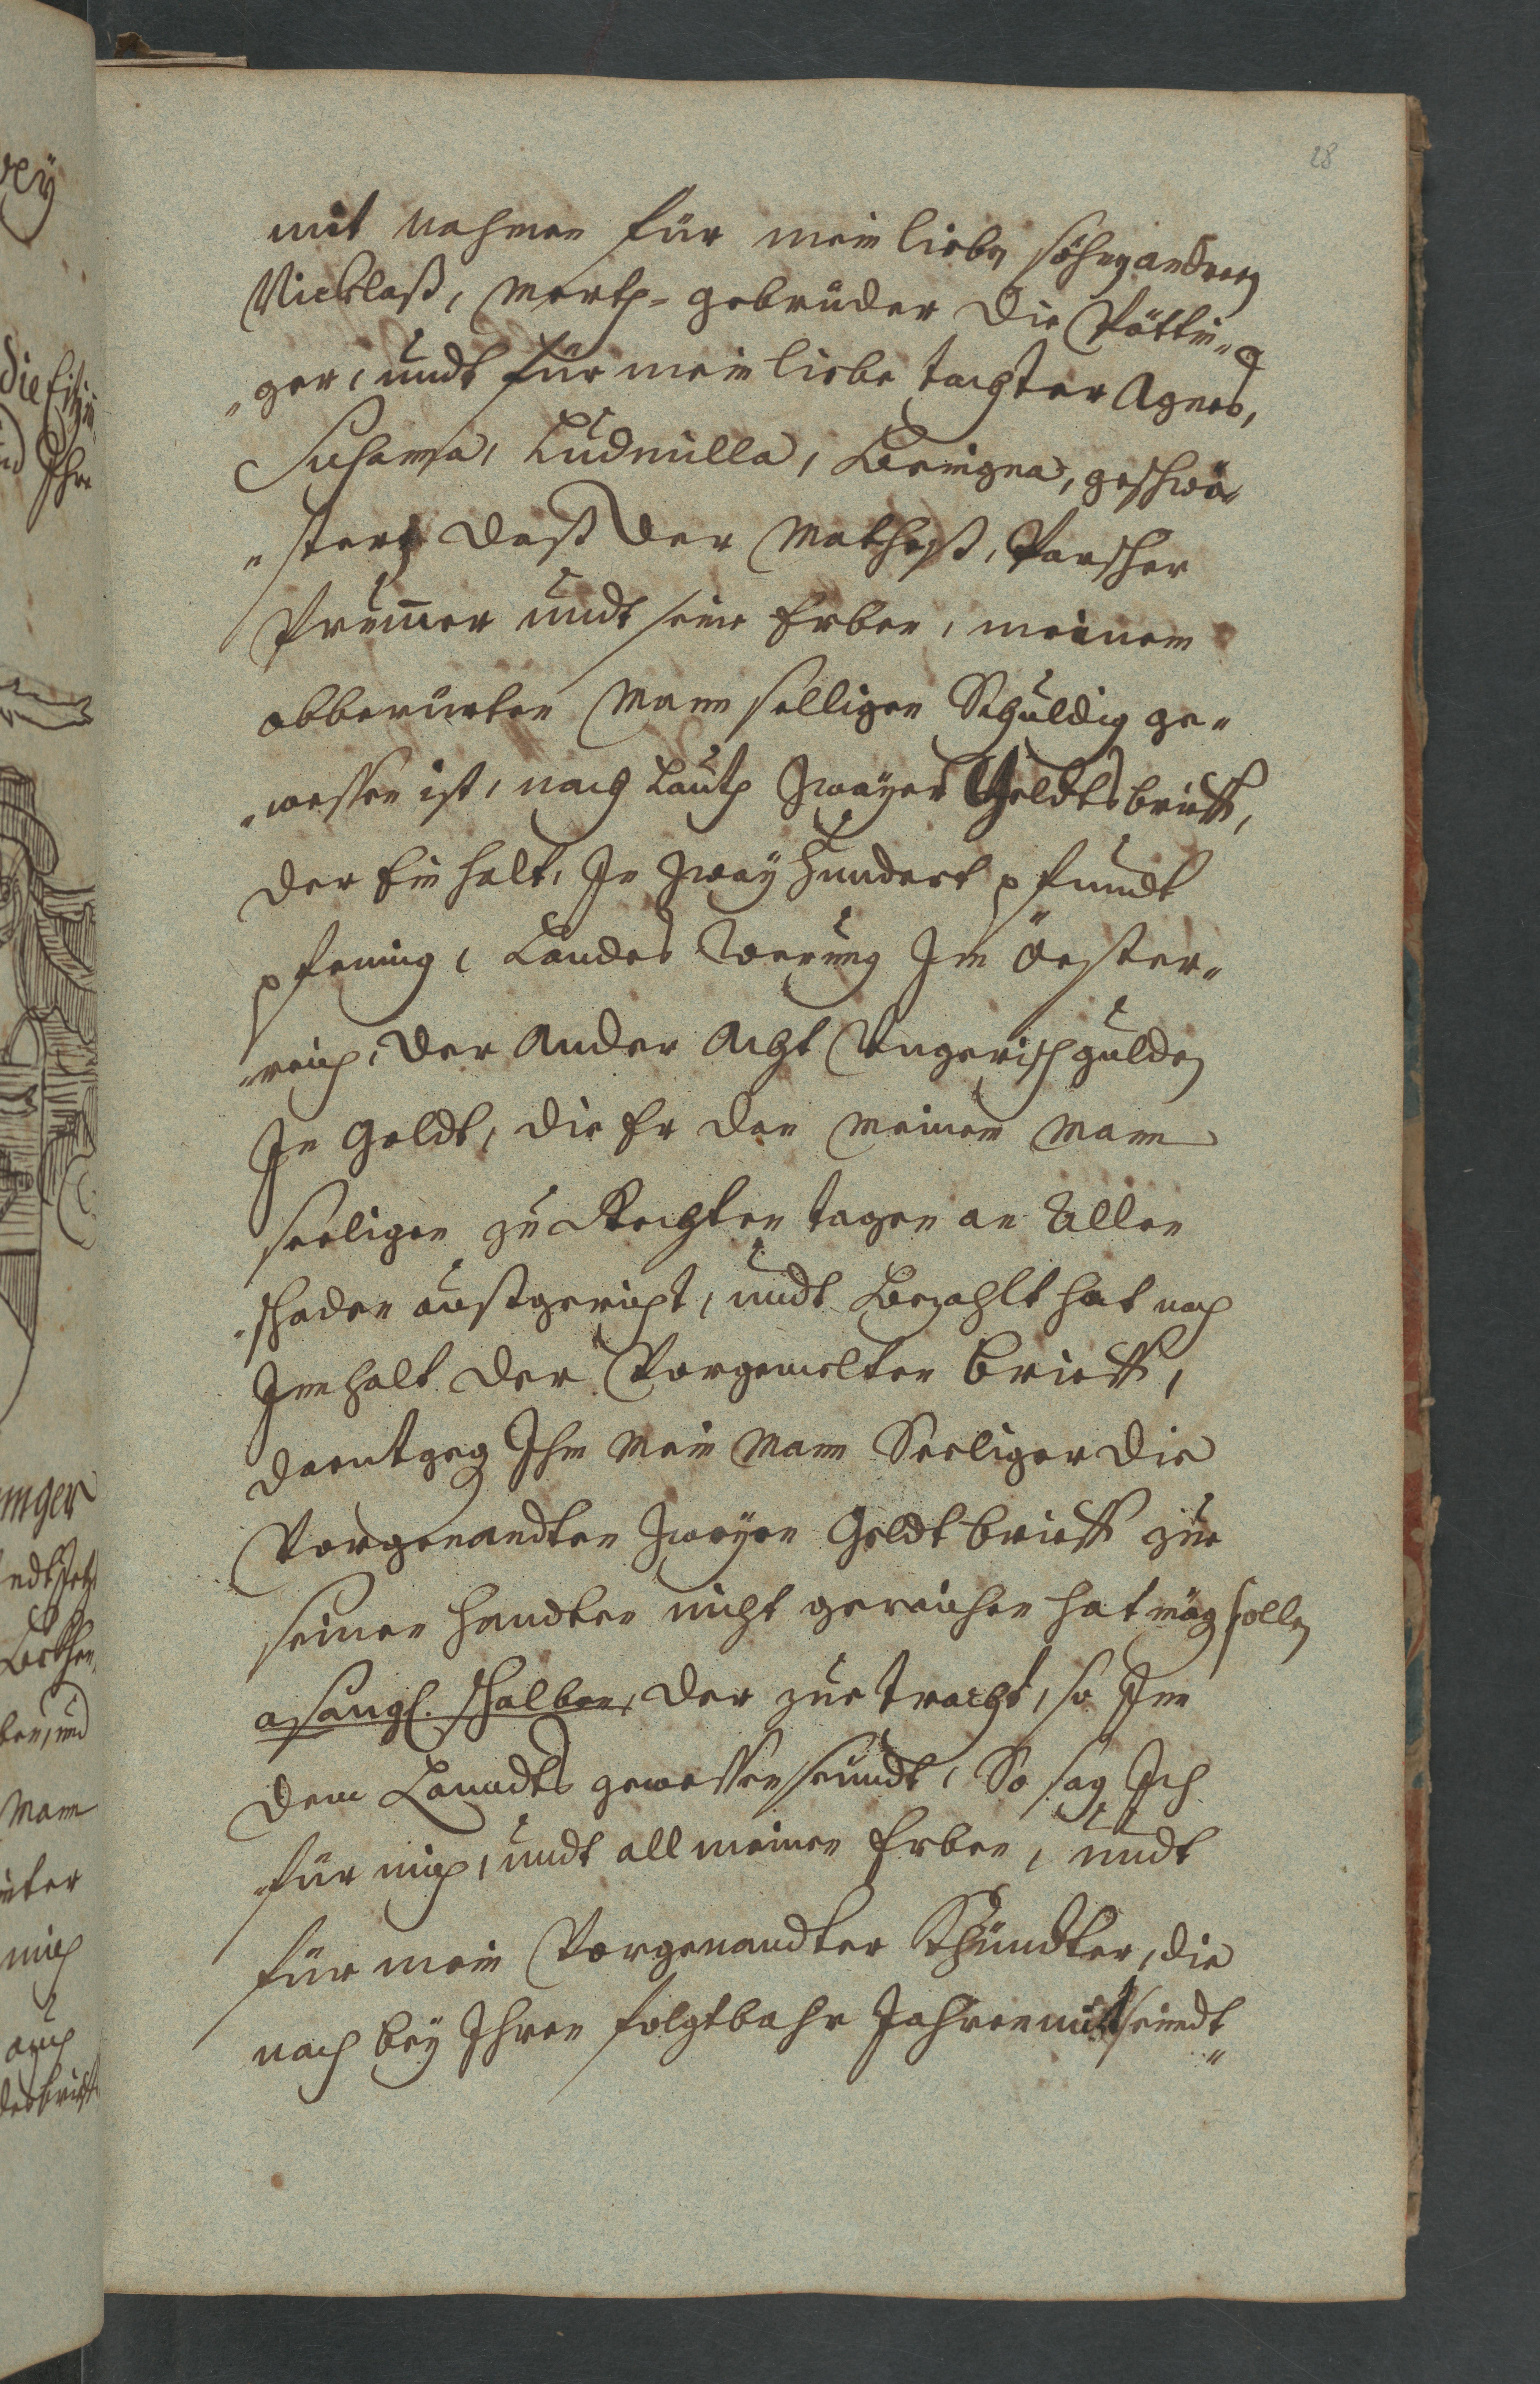 28
mit nahmen für mein lieben söhn Andreen
Nicklaß, Merth- gebrüder die Pöttin-
„ger, undt für mein liebe tachter Agnes,
Susanna, Ludmilla, Benigna, geschwö-
„stert daß der Mathesß, Parscher
Prunner undt seine Erben, meinem
obberürten Mann selligen Schuldig ge-
„wessen ist, nach Lauth zwayer Geldtsbrieff,
der Ein halt, Je zway hundert pfundt
pfening, Landes Werung Jn Oester-
„reich, der Ander Acht Ungerisch gulden
Jn Goldt, die Er den meinen Mann
seeligen zu Rechten tagen an Allen
schaden austgericht, undt Bezahlt hat nach
Jnnhalt der Vorgemelten brieff,
daentgeg Jhm Mein Mann Seeliger die
Vorgenandten zwayen Geldtbrieff zue
seinen handten nicht gereichen hat mög sollen
halben, der zuetracht, so Jnn
dem Lanndts gewessen seindt, So sag Jch
für mich, undt all meinen Erben, undt
für mein Vorgenandter Khündter, die
nach bey Jhren folgtbahr Jahren nit seindt
ey
die Eitzi
Jhr
inger
Mann
mich
auch